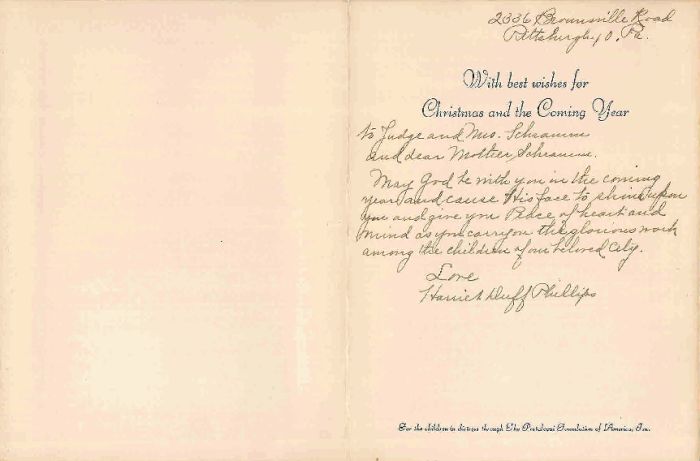 2336 Brownsville Road
Pittsburgh, 10, Pa.
With best wishes for
Christmas and the Coming Year
to Judge and Mrs. Schramm
and dear Mother Schramm.
May God be with you in the coming
year and cause His face to shine upon
you and give you Peace of heart and
mind as you carry on the glorious work
among the children of our beloved City.
Love
Harriet Duff Phillips
For the children in distress through The Pestalozzi Foundation of America, Inc.